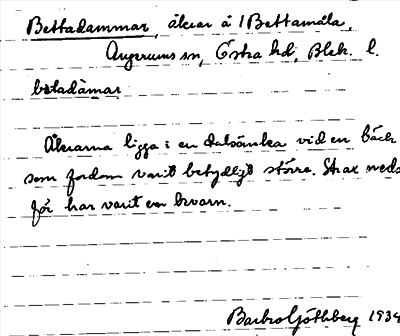 Bettadammar, åkrar å 1 Bettamåla,
Augerums sn, Östra hd, Blek. l.
betadàmar
Åkrarna ligga i en dalsänka vid en bäck
som fordom varit betydligt större. Strax neda
för har varit en kvarn.
Barbro Göthberg 1934